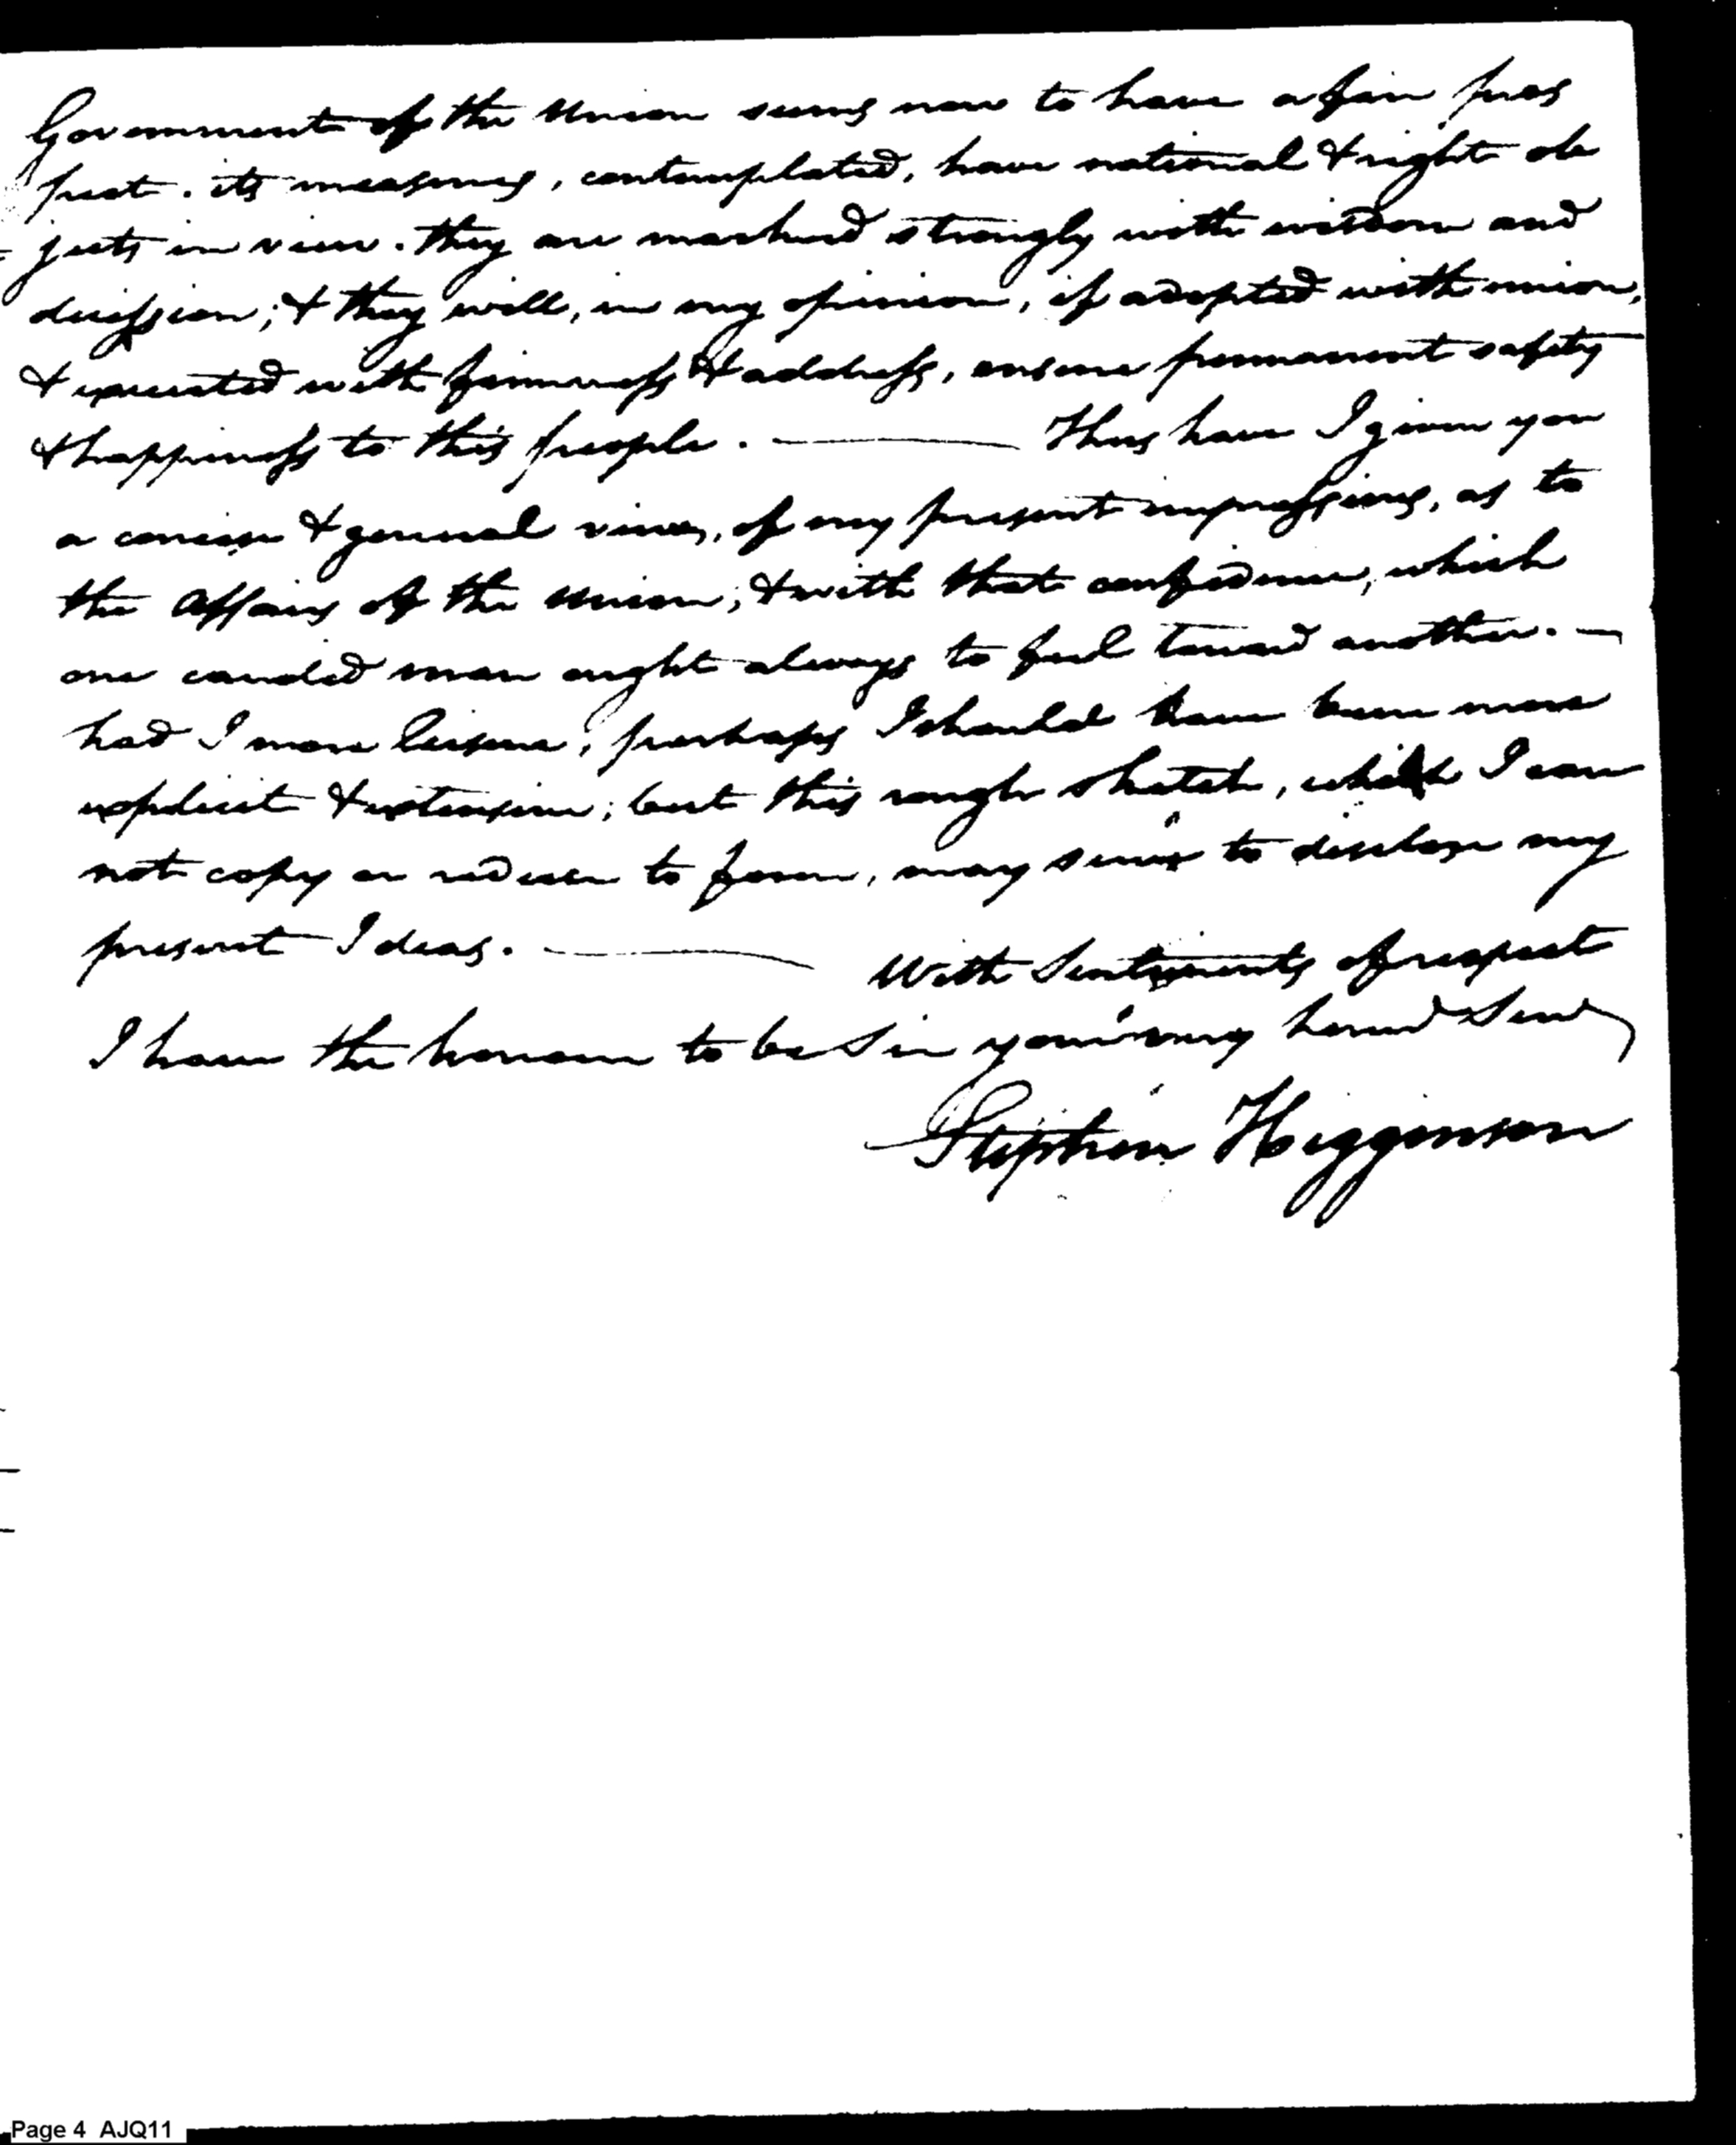 Government of the Union seems now to have a fair pros
pect. its measures, contemplated, have national & right ob
jects in view. they are marked strongly with wisdom and
decission; & they will, in my opinion, if adopted with union,
& executed with firmness & address, ensure permanent safety
& happiness to this people. — Thus have I given you
a concise & general view, of my present impressions, as to
the affairs of the Union; & with that confidence, which
one candid man ought always to feel toward another. —
had I more leisure, perhaps I should have been more
explicit & extensive; but this rough sketch, which I can
not copy or reduce to form, may serve to disclose my
present Ideas. — With Sentiments of respect
I have the honour to be Sir your very hum Servt
Stephen Higginson
Page 4 AJQ11